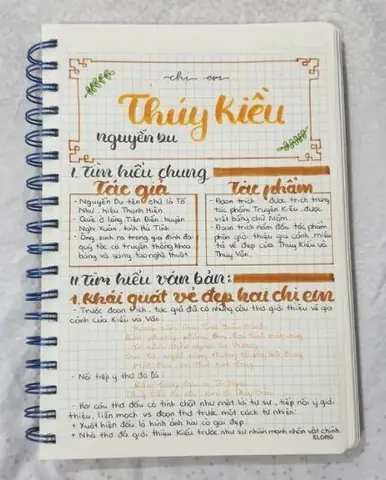 chị em
Thúy Kiều
Nguyễn Du
I. Tìm hiểu chung
Tác giả
- Nguyễn Du tên chữ là Tố
Như, hiệu Thanh Hiên
- Quê ở làng Tiên Điền, huyện
Nghi Xuân, tỉnh Hà Tĩnh
- Ông sinh ra trong gia đình đại
quý tộc có truyền thống khoa
bảng và sáng tạo nghệ thuật
Tác phẩm
- Đoạn trích được trích trong
tác phẩm Truyện Kiều, được
viết bằng chữ Nôm.
- Đoạn trích nằm đầu tác phẩm
phần giới thiệu gia cảnh, miêu
tả vẻ đẹp của Thúy Kiều và
Thúy Vân.
II. Tìm hiểu văn bản:
1. Khái quát vẻ đẹp hai chị em
- Trước đoạn trích, tác giả đã có những câu thơ giới thiệu về gia
cảnh của Kiều và Vân.
- Nối tiếp ý thơ đó là
- Hai câu thơ đầu có tính chất như một lời tự sự, tiếp nối ý giới
thiệu, liền mạch vs đoạn thơ trước một cách tự nhiên.
+ Xuất hiện đầu là hình ảnh hai cô gái đẹp.
+ Nhà thơ đã giới thiệu Kiều trước như sự nhấn mạnh nhân vật chính.
KLONG